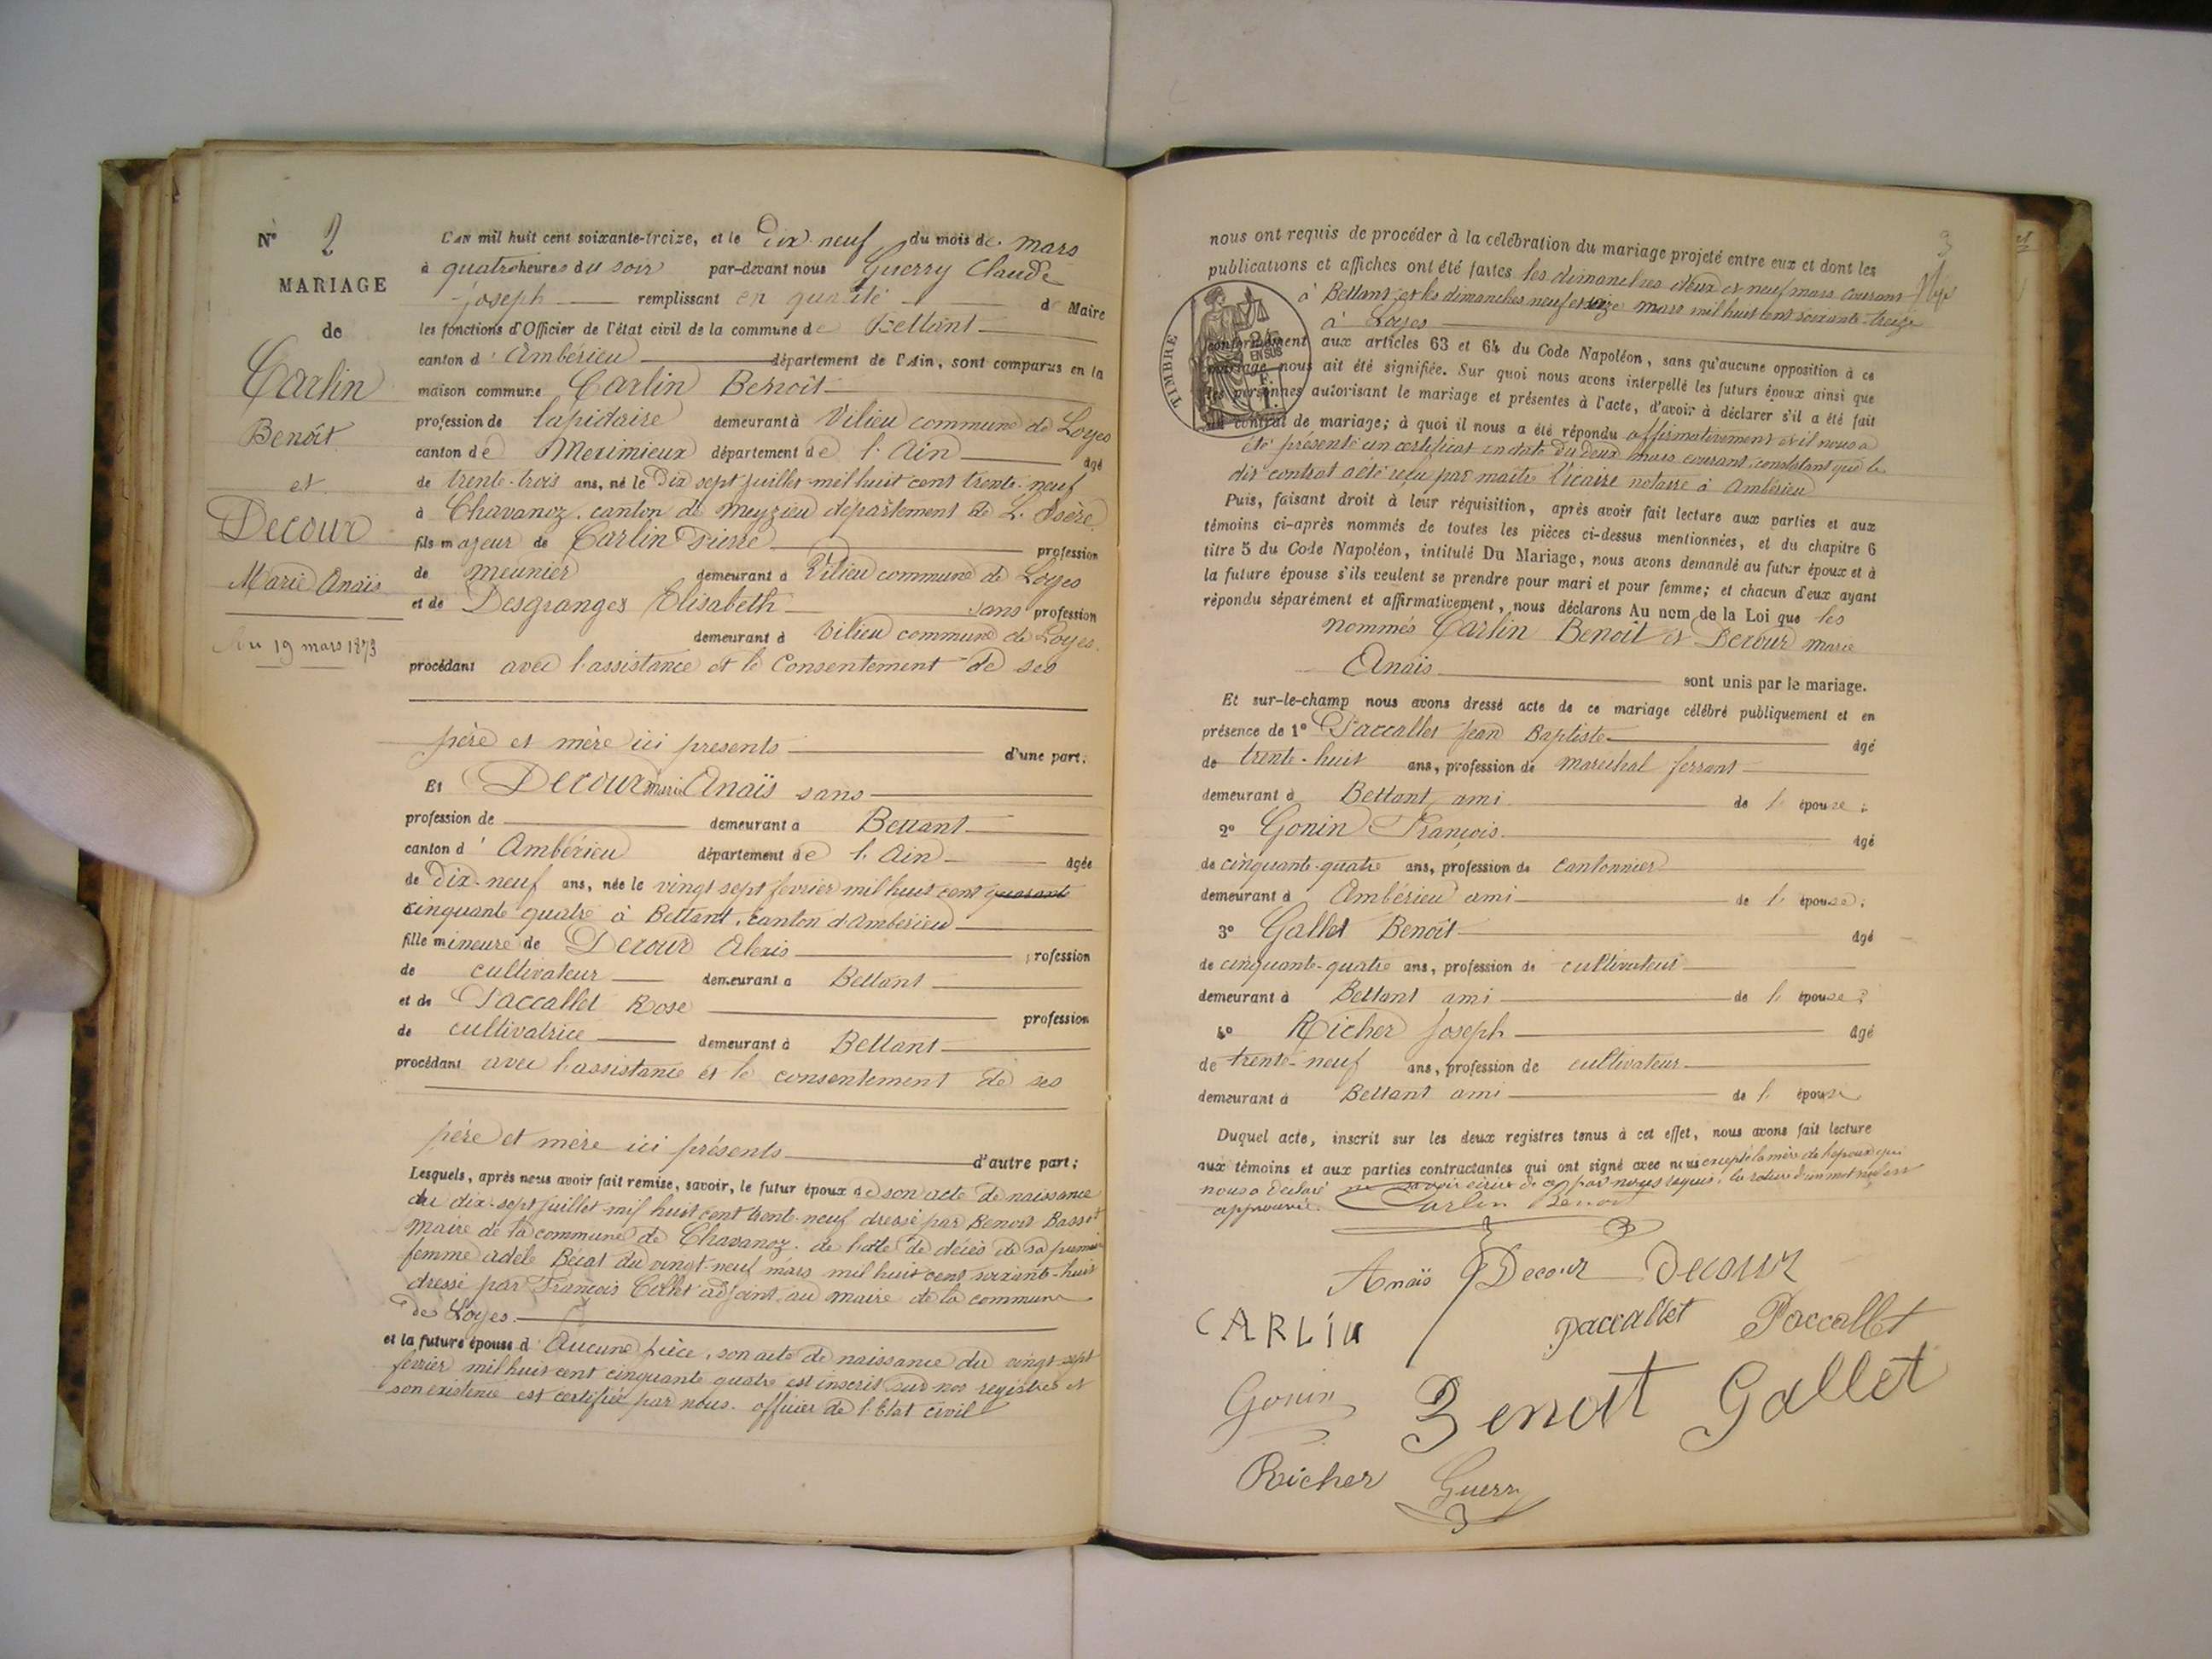 N° 2
MARIAGE
de
Carlin
Benoît
et
Decour
Marie Anaïs
Du 19 mars 1873
L'AN mil huit cent soixante-treize, et le Dix-neuf du mois de mars
à quatre heures du soir par-devant nous Guerry Claude
Joseph remplissant en qualité de Maire
les fonctions d'Officier de l'état civil de la commune de Bettant
canton d'Ambérieu département de l'Ain, sont comparus en la
maison commune Carlin Benoît
profession de lapidaire demeurant à Vilieu commune de Loyes
canton de Meximieux département de l'Ain âgé
de trente-trois ans, né le Dix sept juillet mil huit cent trente-neuf
à Chavanoz, canton de Meyzieu département de L'Isère
fils majeur de Carlin Pierre profession
de meunier demeurant à Vilieu commune de Loyes
et de Desgranges Elisabeth sans profession
demeurant à Vilieu commune de Loyes.
procédant avec l'assistance et le Consentement de ses
père et mère ici presents d'une part.
Et Decour marie Anaïs sans
profession de demeurant à Bettant
canton d'Ambérieu département de l'Ain âgée
de Dix-neuf ans, née le vingt sept fevrier mil huit cent quarante
cinquante quatre à Bettant, canton d'Ambérieu
fille mineure de Decour Alexis profession
de cultivateur demeurant à Bettant
et de Paccallet Rose profession
de cultivatrice demeurant à Bettant
procédant avec l'assistance et le consentement de ses
père et mère ici présents d'autre part;
Lesquels, après nous avoir fait remise, savoir, le futur époux de son acte de naissance
du dix-sept juillet mil huit cent trente-neuf dressé par Benoit Basset
maire de la commune de Chavanoz. de l'acte de décès de sa première
femme adèle Bécat du vingt-neuf mars mil huit cent soixante-huit
dressé par François Collet adjoint au maire de la commune
de Loyes.
et la future épouse d'Aucune pièce, son acte de naissance du vingt-sept
février mil huit cent cinquante quatre est inscrit sur nos registres et
son existence est certifiée par nous. officier de l'Etat civil
3
nous ont requis de procéder à la célébration du mariage projeté entre eux et dont les
publications et affiches ont été faites les dimanches deux et neuf mars courant
à Bettant et les dimanches neuf et seize mars mil huit cent soixante-treize
à Loyes
conformément aux articles 63 et 64 du Code Napoléon, sans qu'aucune opposition à ce
mariage nous ait été signifiée. Sur quoi nous avons interpellé les futurs époux ainsi que
les personnes autorisant le mariage et présentes à l'acte, d'avoir à déclarer s'il a été fait
un contrat de mariage; à quoi il nous a été répondu affirmativement et il nous a
été présenté un certificat en date du deux mars courant, constatant que le
dit contrat a été reçu par maître Vicaire notaire à Ambérieu
TIMBRE
2/10 EN SUS
Puis, faisant droit à leur réquisition, après avoir fait lecture aux parties et aux
témoins ci-après nommés de toutes les pièces ci-dessus mentionnées, et du chapitre 6
titre 5 du Code Napoléon, intitulé Du Mariage, nous avons demandé au futur époux et à
la future épouse s'ils veulent se prendre pour mari et pour femme; et chacun d'eux ayant
répondu séparément et affirmativement, nous déclarons Au nom de la Loi que les
nommés Carlin Benoît et Decour marie
Anaïs sont unis par le mariage.
Et sur-le-champ nous avons dressé acte de ce mariage célébré publiquement et en
présence de 1° Paccallet Jean Baptiste âgé
de trente-huit ans, profession de maréchal ferrant
demeurant à Bettant, ami de l'épouse;
2° Gonin François âgé
de cinquante-quatre ans, profession de cantonnier
demeurant à Ambérieu ami de l'épouse;
3° Gallet Benoît âgé
de cinquante-quatre ans, profession de cultivateur
demeurant à Bettant ami de l'épouse;
4° Richer Joseph âgé
de trente-neuf ans, profession de cultivateur
demeurant à Bettant ami de l'épouse
Duquel acte, inscrit sur les deux registres tenus à cet effet, nous avons fait lecture
aux témoins et aux parties contractantes qui ont signé avec nous excepté la mère de l'époux qui
nous a déclaré ne savoir écrire de ce par nous requis. la rature d'un mot nul est
approuvée. Carlin Benoit
Anaïs Decour Decour
CARLIN Paccallet Paccallet
Gonin Benoit Gallet
Richer Guerry